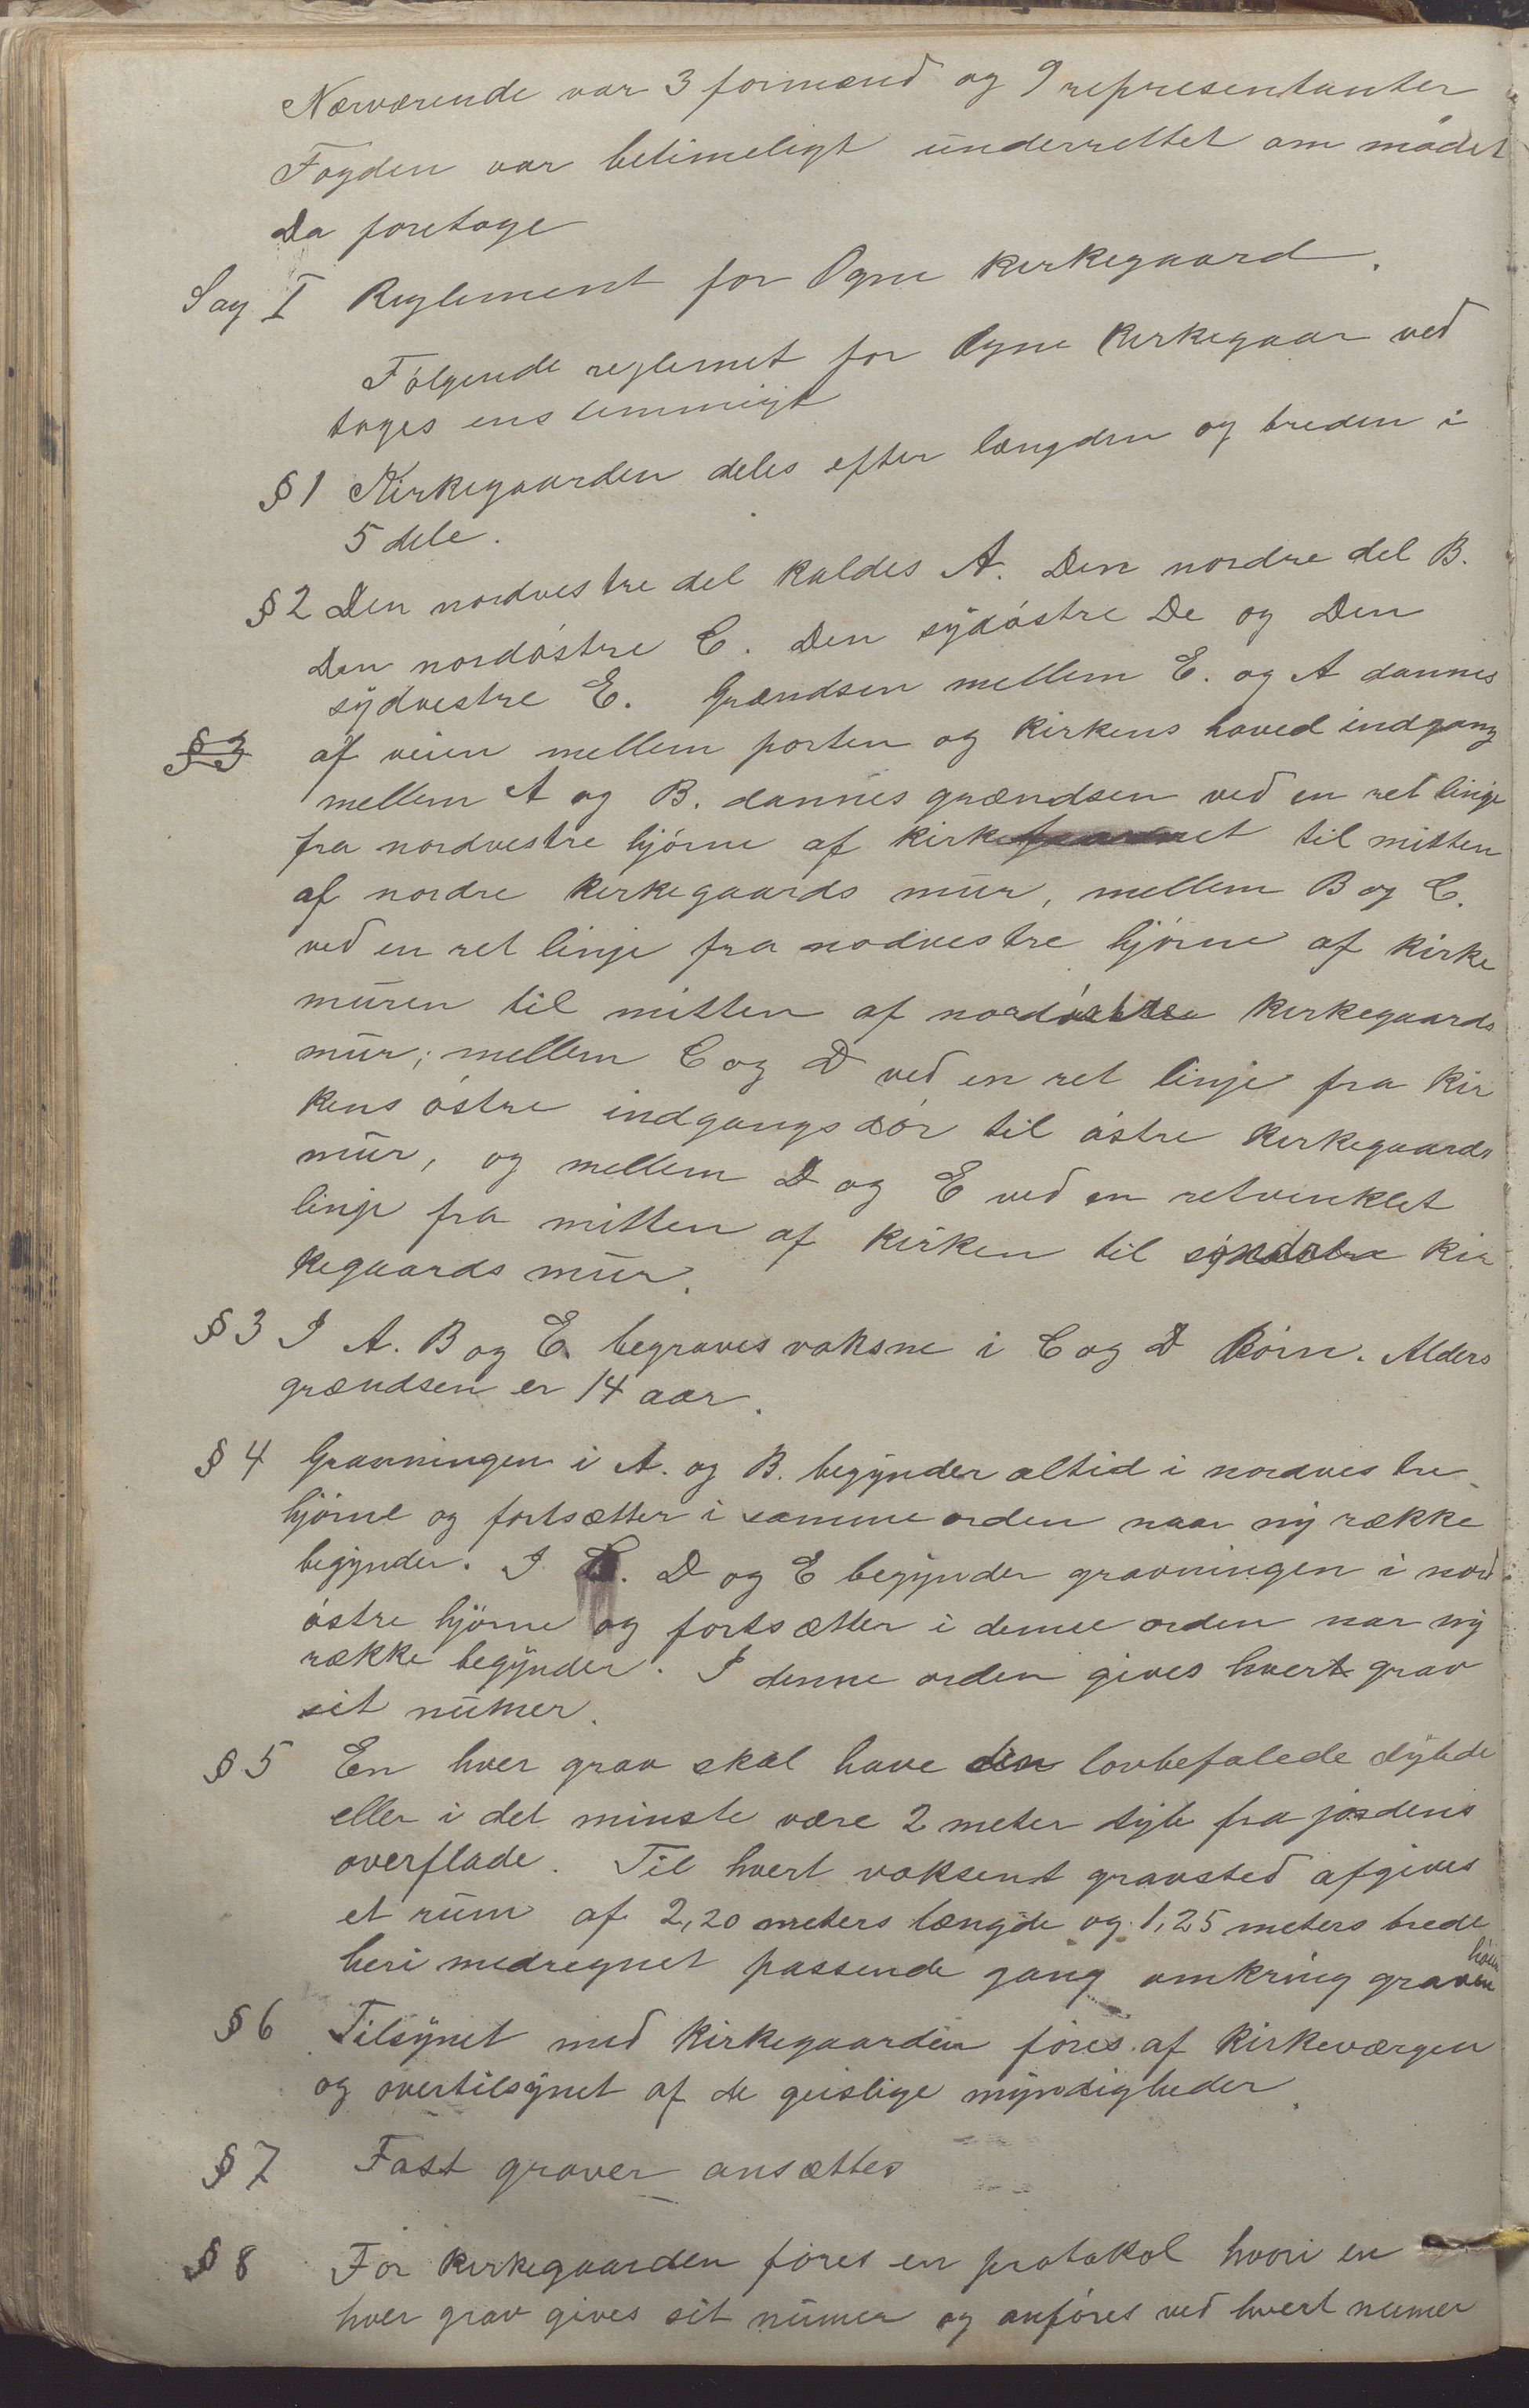 Nærværende var 3 formænd og 9 representanter
Fogden var betimeligt underrettet om mødet
Da foretoges
Sag I Reglement for Ogne kirkegaard.
Følgende reglemet for Ogne kirkegaar ved
toges enstemmigt
§ 1 Kirkegaarden deles efter længden og breden i
5 dele.
§ 2 Den nordvestre del kaldes A. Den nordre del B.
Den nordøstre C. Den sydøstre De og Den
sydvestre E. Grændsen mellem E. og A dannes
§ 3 af veien mellem porten og kirkens hoved indgang
mellem A og B. dannes grændsen ved en ret linje
fra nordvestre hjørne af kirke til mitten
af nordre kirkegaards mur, mellem B og C.
ved en ret linje fra nodvestre hjørne af kirke
muren til mitten af nordøstre kirkegaards
mur; mellem C og D ved en ret linje fra kir
kens østre indgangs dør til østre kirkegaards
mur, og mellem D og E ved en retvinklet
linje fra mitten af kirken til kir
kegaards mur.
§ 3 I A. B og E. begraves voksne i C og D Børn. Alders
grændsen er 14 aar.
§ 4 Gravningen i A. og B. begynder altid i nordvestre
hjørne og fortsætter i samme orden naar ny række
begynder. I C. D og E begynder gravningen i nord
østre hjørne og fortsætter i denne orden nar ny
række begynder. I denne orden gives hvert grav
sit numer.
§ 5 En hver grav skal have den lovbefalede dybde
eller i det minste være 2 meter dyb fra jordens
overflade. Til hvert voksent gravsted afgives
et rum af 2,20 meters længde og 1,25 meters brede
heri medregnet passende gang omkring graven
§ 6 Tilsynet med kirkegaarden føres af kirkeværgen
og overtilsynet af de geislige myndigheder.
§ 7 Fast graver ansættes
§ 8 For kirkegaarden føres en protokol hvori en
hver grav gives sit numer og anføres ved hvert numer